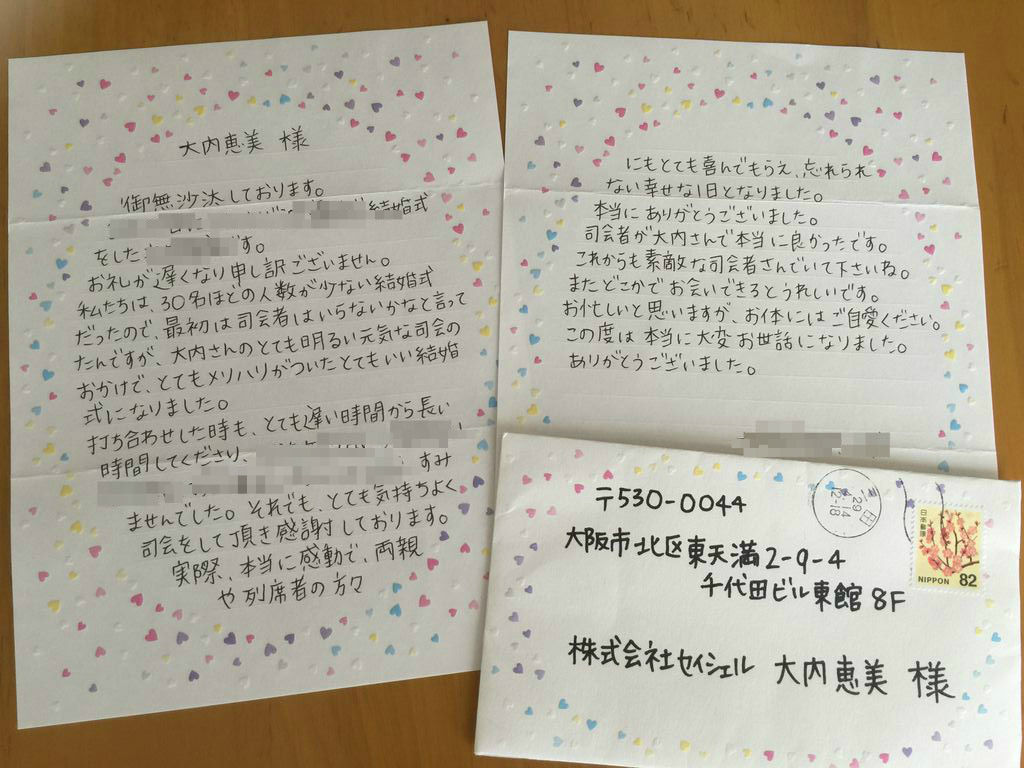 大内恵美 様
御無沙汰しております。
結婚式
をした です。
お礼が遅くなり申し訳ございません。
私たちは、30名ほどの人数が少ない結婚式
だったので、最初は司会者はいらないかなと言って
たんですが、大内さんのとても明るい元気な司会の
おかげで、とてもメリハリがついたとてもいい結婚
式になりました。
打ち合わせした時も、とても遅い時間から長い
時間してくださり、
すみ
ませんでした。それでも、とても気持ちよく
司会をして頂き感謝しております。
実際、本当に感動で、両親
や列席者の方々
にもとても喜んでもらえ、忘れられ
ない幸せな1日となりました。
本当にありがとうございました。
司会者が大内さんで本当に良かったです。
これからも素敵な司会者さんでいて下さいね。
またどこかでお会いできるとうれしいです。
お忙しいと思いますが、お体にはご自愛ください。
この度は本当に大変お世話になりました。
ありがとうございました。
〒530-0044
大阪市北区東天満2-9-4
千代田ビル東館8F
株式会社セイシェル 大内恵美 様
日本郵便
NIPPON 82
29
12-18